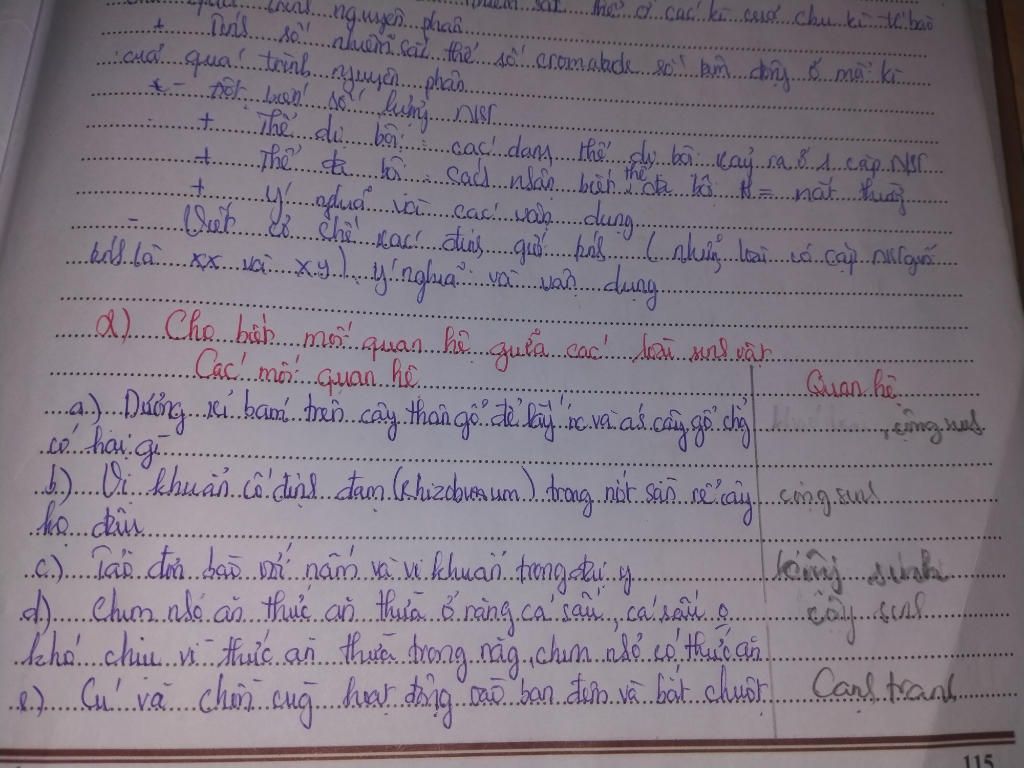 nguyên phân
+ Tính số nhiễm sắc thể số cromatide số tâm động ở mỗi kì
của quá trình nguyên phân
- Đột biến số lượng NST
+ Thể dị bội: các dạng thể dị bội xảy ra ở 1 cặp NST
+ Thể đa bội: cách nhận biết thể đa bội
+ Ý nghĩa và các vận dụng
- cơ chế xác định giới tính (những loài có cặp NST giới
tính là XX và XY) ý nghĩa và vận dụng
2) Cho biết mối quan hệ giữa các loài sinh vật
Các mối quan hệ Quan hệ
a) Dương xỉ bám trên cây thân gỗ để lấy nc và as cây gỗ
có hại gì cộng sinh
b) Vi khuẩn cố định đạm (Rhizobium) trong nốt sần rễ cây cộng sinh
họ đậu
c) Tảo đơn bào với nấm và vi khuẩn trong địa y sinh
d) Chim nhỏ ăn thức ăn thừa ở răng cá sấu, cá sấu o sinh
khó chịu vì thức ăn thừa trong răng, chim nhỏ có thức ăn
e) Cú và chồn cùg hoạt động vào ban đêm và bắt chuột Cạnh tranh
115